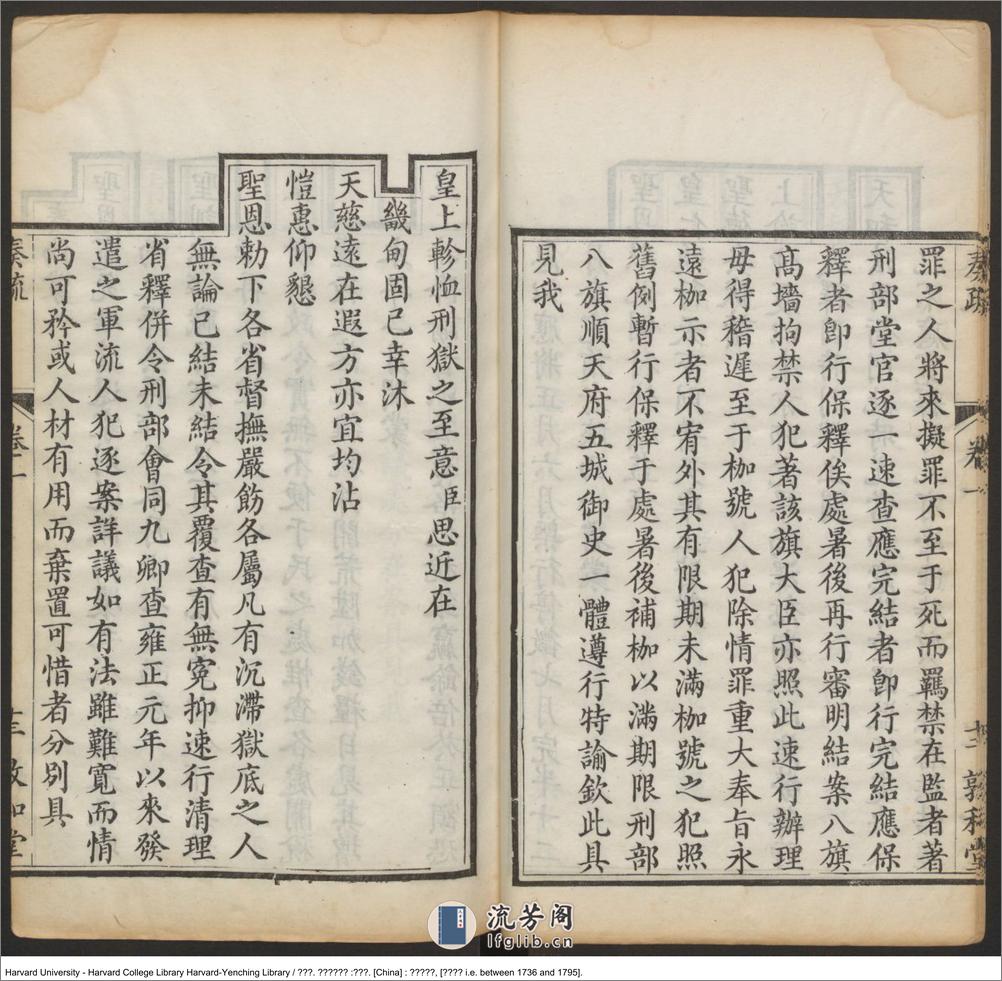 奏疏 卷一 十二 敦和堂
罪之人將來擬罪不至于死而羈禁在監者著
刑部堂官逐一速查應完結者卽行完結應保
釋者卽行保釋俟處暑後再行審明結案八旗
高墻拘禁人犯著該旗大臣亦照此速行辦理
毋得稽遲至于枷號人犯除情罪重大奉旨永
遠枷示者不宥外其有限期未滿枷號之犯照
舊例暫行保釋于處暑後補枷以滿期限刑部
八旗順天府五城御史一體遵行特諭欽此具
見我
皇上軫恤刑獄之至意臣思近在
畿甸固已幸沐
天慈遠在遐方亦宜均沾
愷惠仰懇
聖恩勅下各省督撫嚴飭各屬凡有沉滯獄底之人
無論已結未結令其覆查有無冤抑速行清理
省釋併令刑部會同九卿查雍正元年以來發
遣之軍流人犯逐案詳議如有法雖難寬而情
尚可矜或人材有用而棄置可惜者分別具
奏疏 卷一 敦和堂
流芳阁
lfglib.cn
Harvard University - Harvard College Library Harvard-Yenching Library / ???. ?????? :???. [China] : ?????, [???? i.e. between 1736 and 1795].